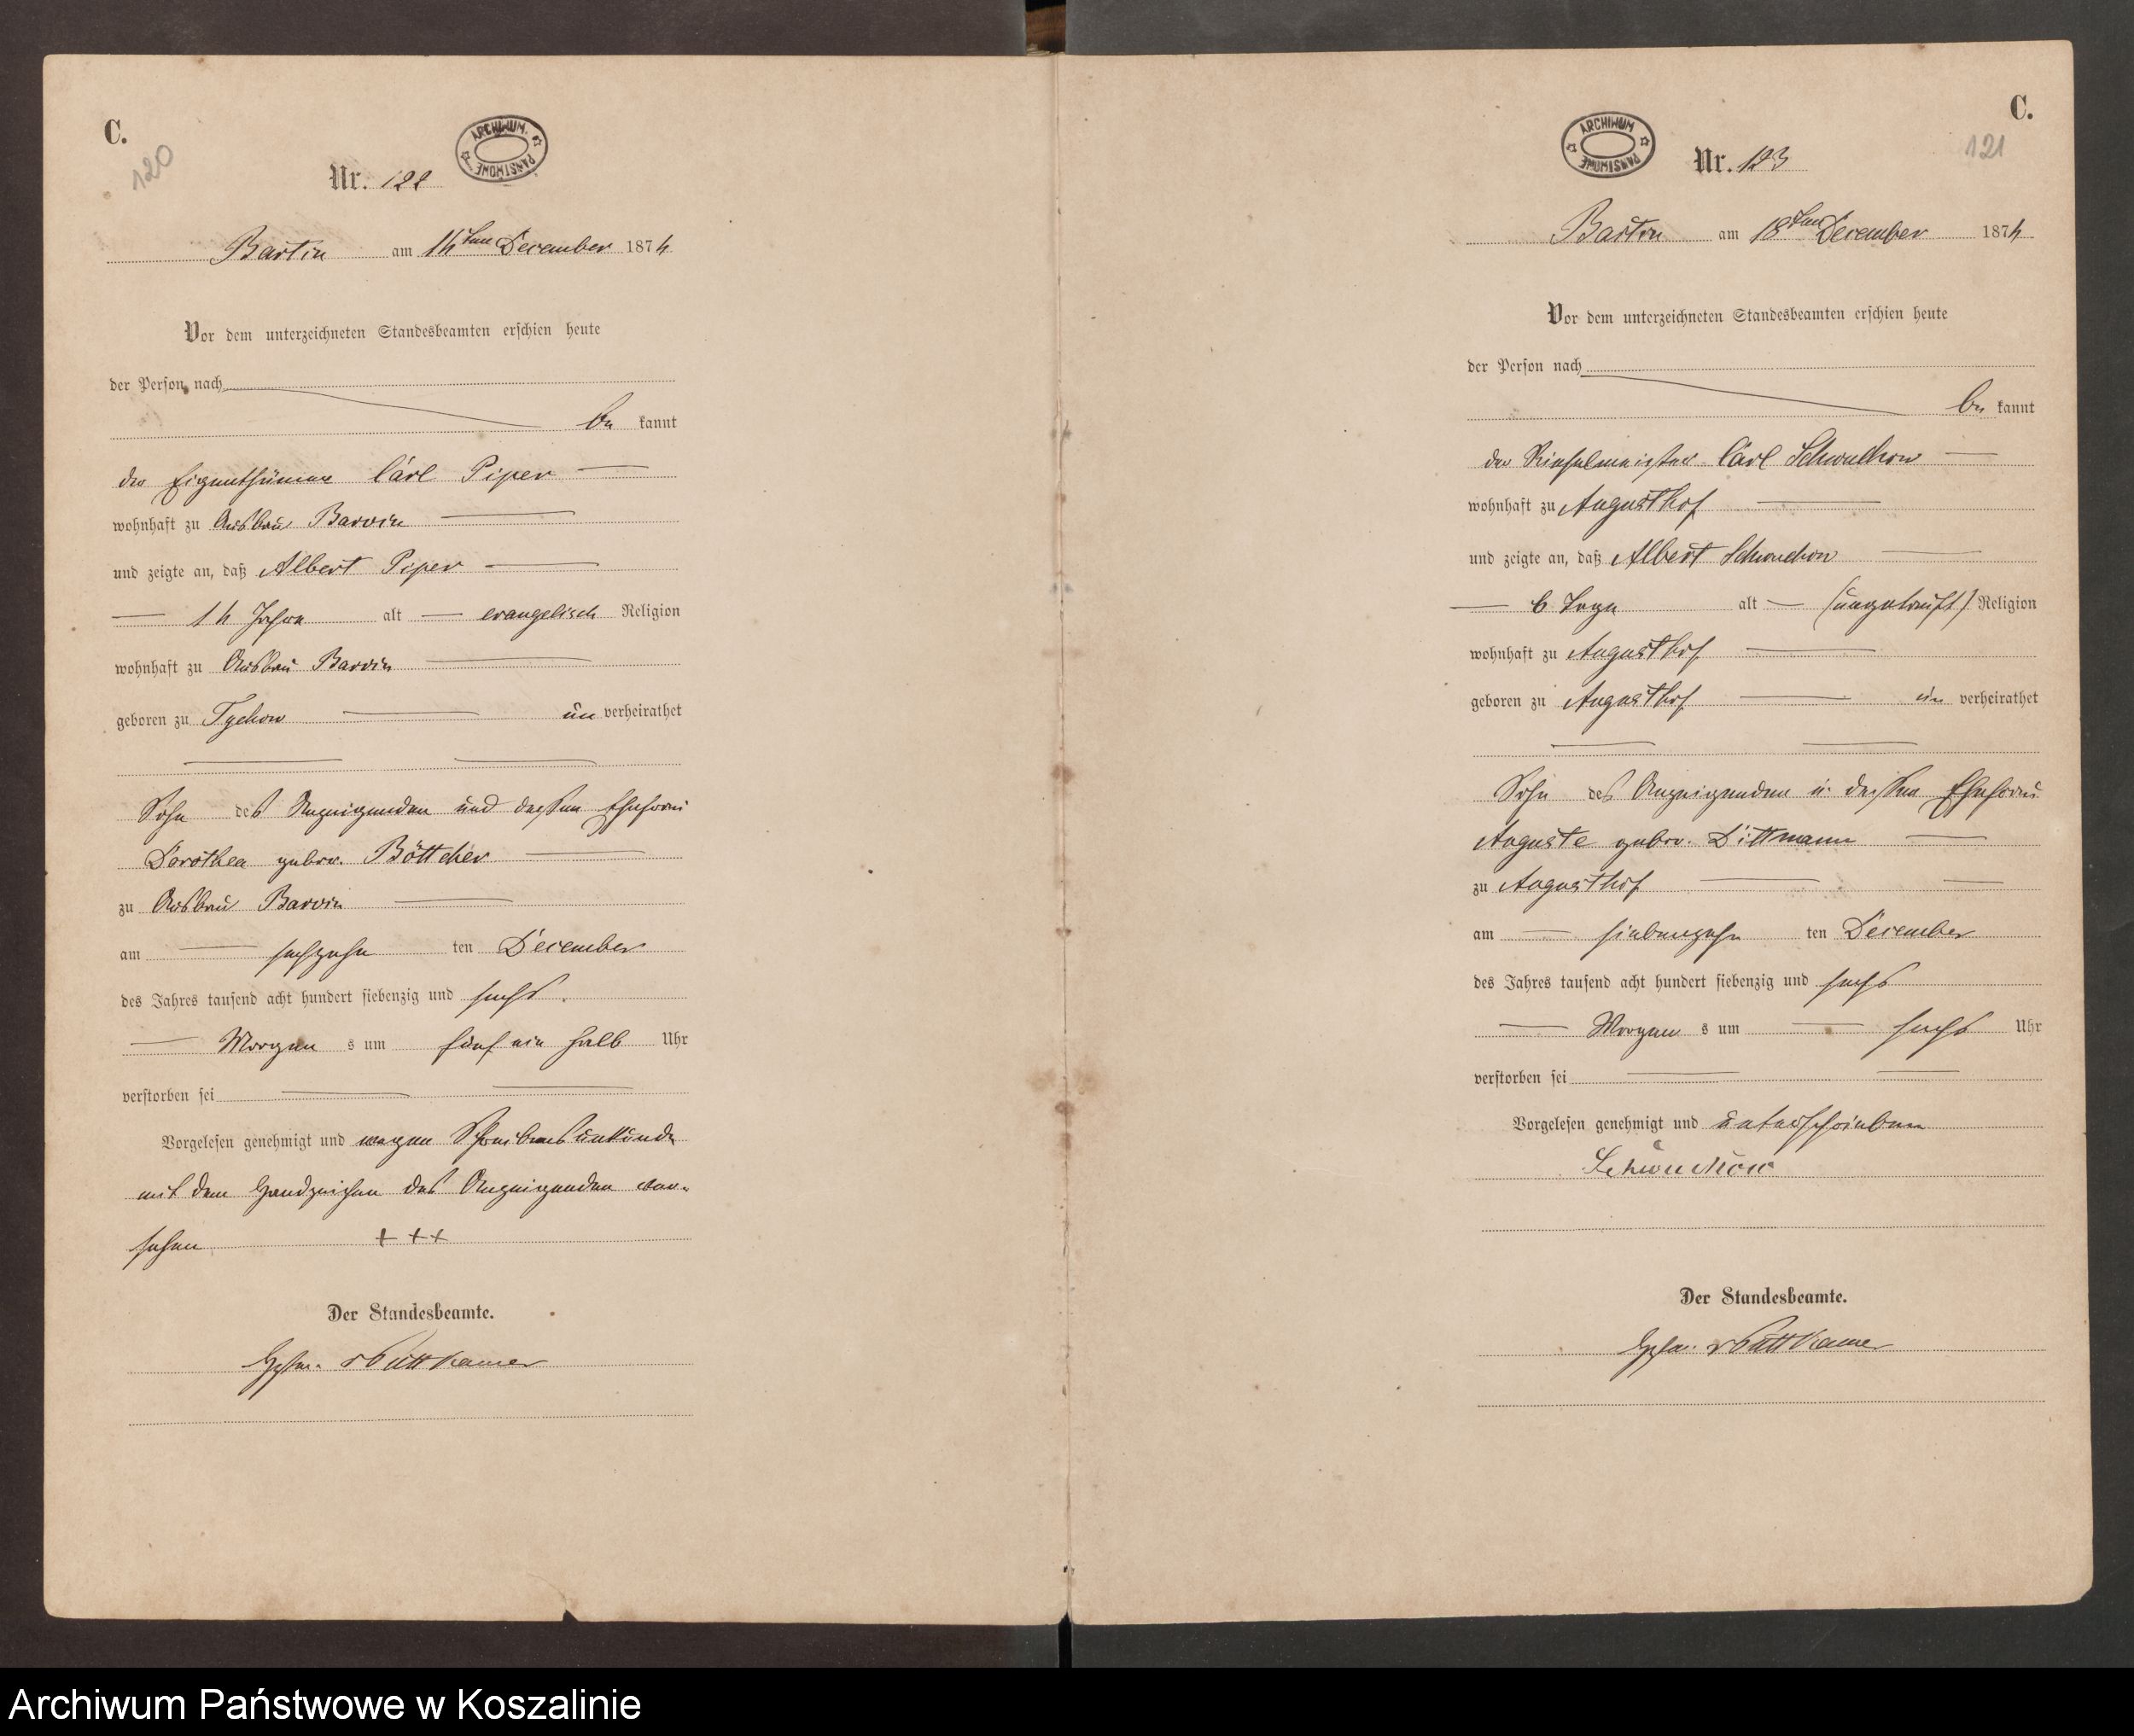 C.
120
ARCHIWUM PAŃSTWOWE
Nr. 122
Bartin am ten December 187
Vor dem unterzeichneten Standesbeamten erschien heute
der Person nach
be kannt
der Eigenthümer Carl Piper
wohnhaft zu Ausbau Barvin
und zeigte an, daß Albert Piper
Jahre alt evangelisch Religion
wohnhaft zu Ausbau Barvin
geboren zu Tychow un verheirathet
Sohn des Anzeigenden und dessen Ehefrau
Dorothea gebor. Böttcher
zu Ausbau Barvin
am sechzehn ten December
des Jahres tausend acht hundert siebenzig und sechs.
Morgen s um fünf ein halb Uhr
verstorben sei
Vorgelesen genehmigt und wegen Schreibensunkunde
mit dem Handzeichen des Anzeigenden ver-
sehen +++
Der Standesbeamte.
v Puttkamer
C.
121
ARCHIWUM PAŃSTWOWE
Nr. 123
Bartin am 18ten December 187
Vor dem unterzeichneten Standesbeamten erschien heute
der Person nach
be kannt
der Rieselmeister Carl Schwuchow
wohnhaft zu Augusthof
und zeigte an, daß Albert Schwuchow
6 Tage alt (ungetauft) Religion
wohnhaft zu Augusthof
geboren zu Augusthof un verheirathet
Sohn des Anzeigenden u. dessen Ehefrau
Auguste gebor. Dittmann
zu Augusthof
am siebenzehn ten December
des Jahres tausend acht hundert siebenzig und sechs
Morgen s um sechs Uhr
verstorben sei
Vorgelesen genehmigt und unterschrieben
Schwuchow
Der Standesbeamte.
v Puttkamer
Archiwum Państwowe w Koszalinie